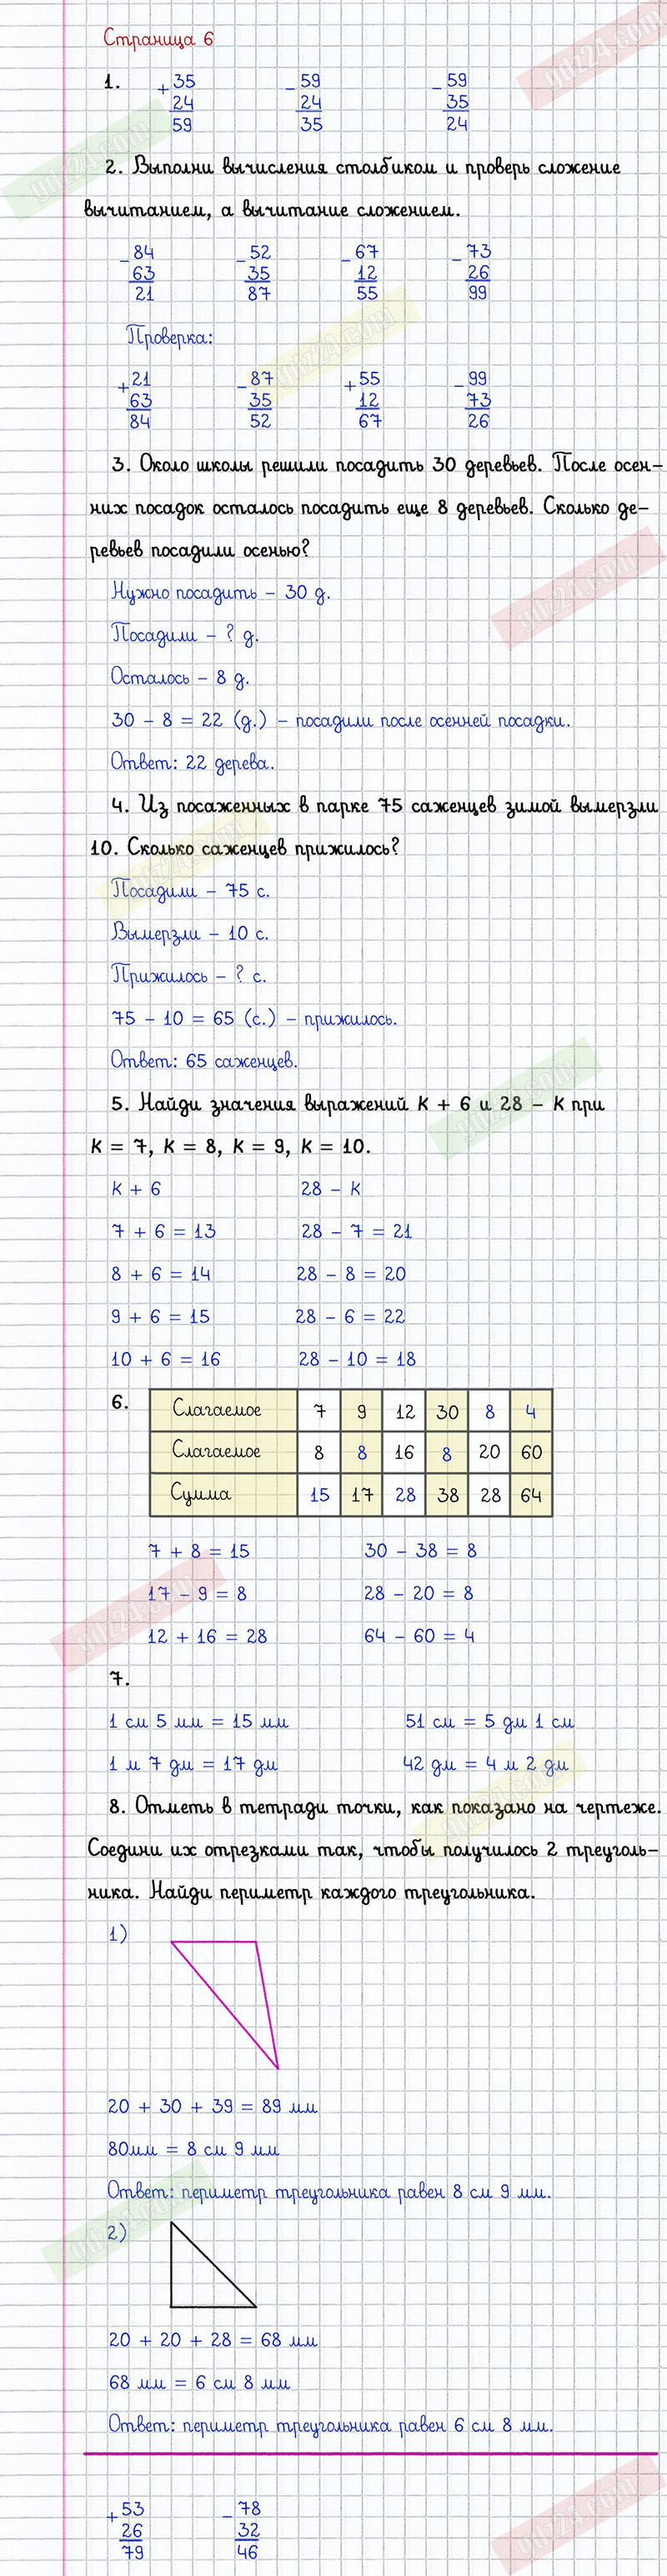 Страница 6
1. + 35 - 59 - 59
24 24 35
59 35 24
2. Выполни вычисления столбиком и проверь сложение
вычитанием, а вычитание сложением.
- 84 - 52 - 67 - 73
63 35 12 26
21 87 55 99
Проверка:
+ 21 - 87 + 55 - 99
63 35 12 73
84 52 67 26
3. Около школы решили посадить 30 деревьев. После осен-
них посадок осталось посадить еще 8 деревьев. Сколько де-
ревьев посадили осенью?
Нужно посадить - 30 д.
Посадили - ? д.
Осталось - 8 д.
30 - 8 = 22 (д.) - посадили после осенней посадки.
Ответ: 22 дерева.
4. Из посаженных в парке 75 саженцев зимой вымерзли
10. Сколько саженцев прижилось?
Посадили - 75 с.
Вымерзли - 10 с.
Прижилось - ? с.
75 - 10 = 65 (с.) - прижилось.
Ответ: 65 саженцев.
5. Найди значения выражений К + 6 и 28 - К при
К = 7, К = 8, К = 9, К = 10.
К + 6 28 - К
7 + 6 = 13 28 - 7 = 21
8 + 6 = 14 28 - 8 = 20
9 + 6 = 15 28 - 6 = 22
10 + 6 = 16 28 - 10 = 18
6. Слагаемое 7 9 12 30 8 4
Слагаемое 8 8 16 8 20 60
Сумма 15 17 28 38 28 64
7 + 8 = 15 30 - 38 = 8
17 - 9 = 8 28 - 20 = 8
12 + 16 = 28 64 - 60 = 4
7.
1 см 5 мм = 15 мм 51 см = 5 дм 1 см
1 м 7 дм = 17 дм 42 дм = 4 м 2 дм
8. Отметь в тетради точки, как показано на чертеже.
Соедини их отрезками так, чтобы получилось 2 треуголь-
ника. Найди периметр каждого треугольника.
1)
20 + 30 + 39 = 89 мм
80мм = 8 см 9 мм
Ответ: периметр треугольника равен 8 см 9 мм.
2)
20 + 20 + 28 = 68 мм
68 мм = 6 см 8 мм
Ответ: периметр треугольника равен 6 см 8 мм.
+ 53 - 78
26 32
79 46
gdz24.com
gdz24.com
gdz24.com
gdz24.com
gdz24.com
gdz24.com
gdz24.com
gdz24.com
gdz24.com
gdz24.com